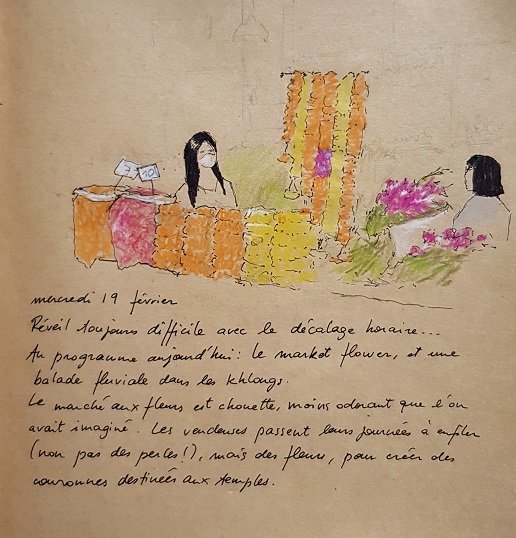 7
10
mercredi 19 février
Réveil toujours difficile avec le décalage horaire...
Au programme aujourd'hui : le market flower, et une
balade fluviale dans les khlongs.
Le marché aux fleurs est chouette, moins odorant que l'on
avait imaginé. Les vendeuses passent leurs journées à enfiler
(non pas des perles!), mais des fleurs, pour créer des
couronnes destinées aux temples.